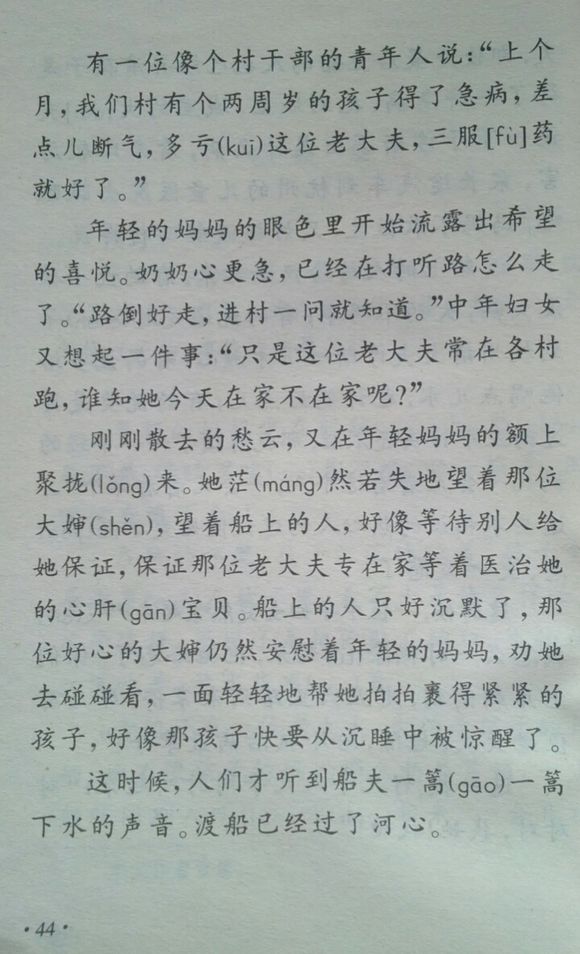 有一位像个村干部的青年人说：“上个
月，我们村有个两周岁的孩子得了急病，差
点儿断气，多亏(kuī)这位老大夫，三服[fù]药
就好了。”
年轻的妈妈的眼色里开始流露出希望
的喜悦。奶奶心更急，已经在打听路怎么走
了。“路倒好走，进村一问就知道。”中年妇女
又想起一件事：“只是这位老大夫常在各村
跑，谁知她今天在家不在家呢？”
刚刚散去的愁云，又在年轻妈妈的额上
聚拢(lǒng)来。她茫(máng)然若失地望着那位
大婶(shěn)，望着船上的人，好像等待别人给
她保证，保证那位老大夫专在家等着医治她
的心肝(gān)宝贝。船上的人只好沉默了，那
位好心的大婶仍然安慰着年轻的妈妈，劝她
去碰碰看，一面轻轻地帮她拍拍裹得紧紧的
孩子，好像那孩子快要从沉睡中被惊醒了。
这时候，人们才听到船夫一篙(gāo)一篙
下水的声音。渡船已经过了河心。
·44·